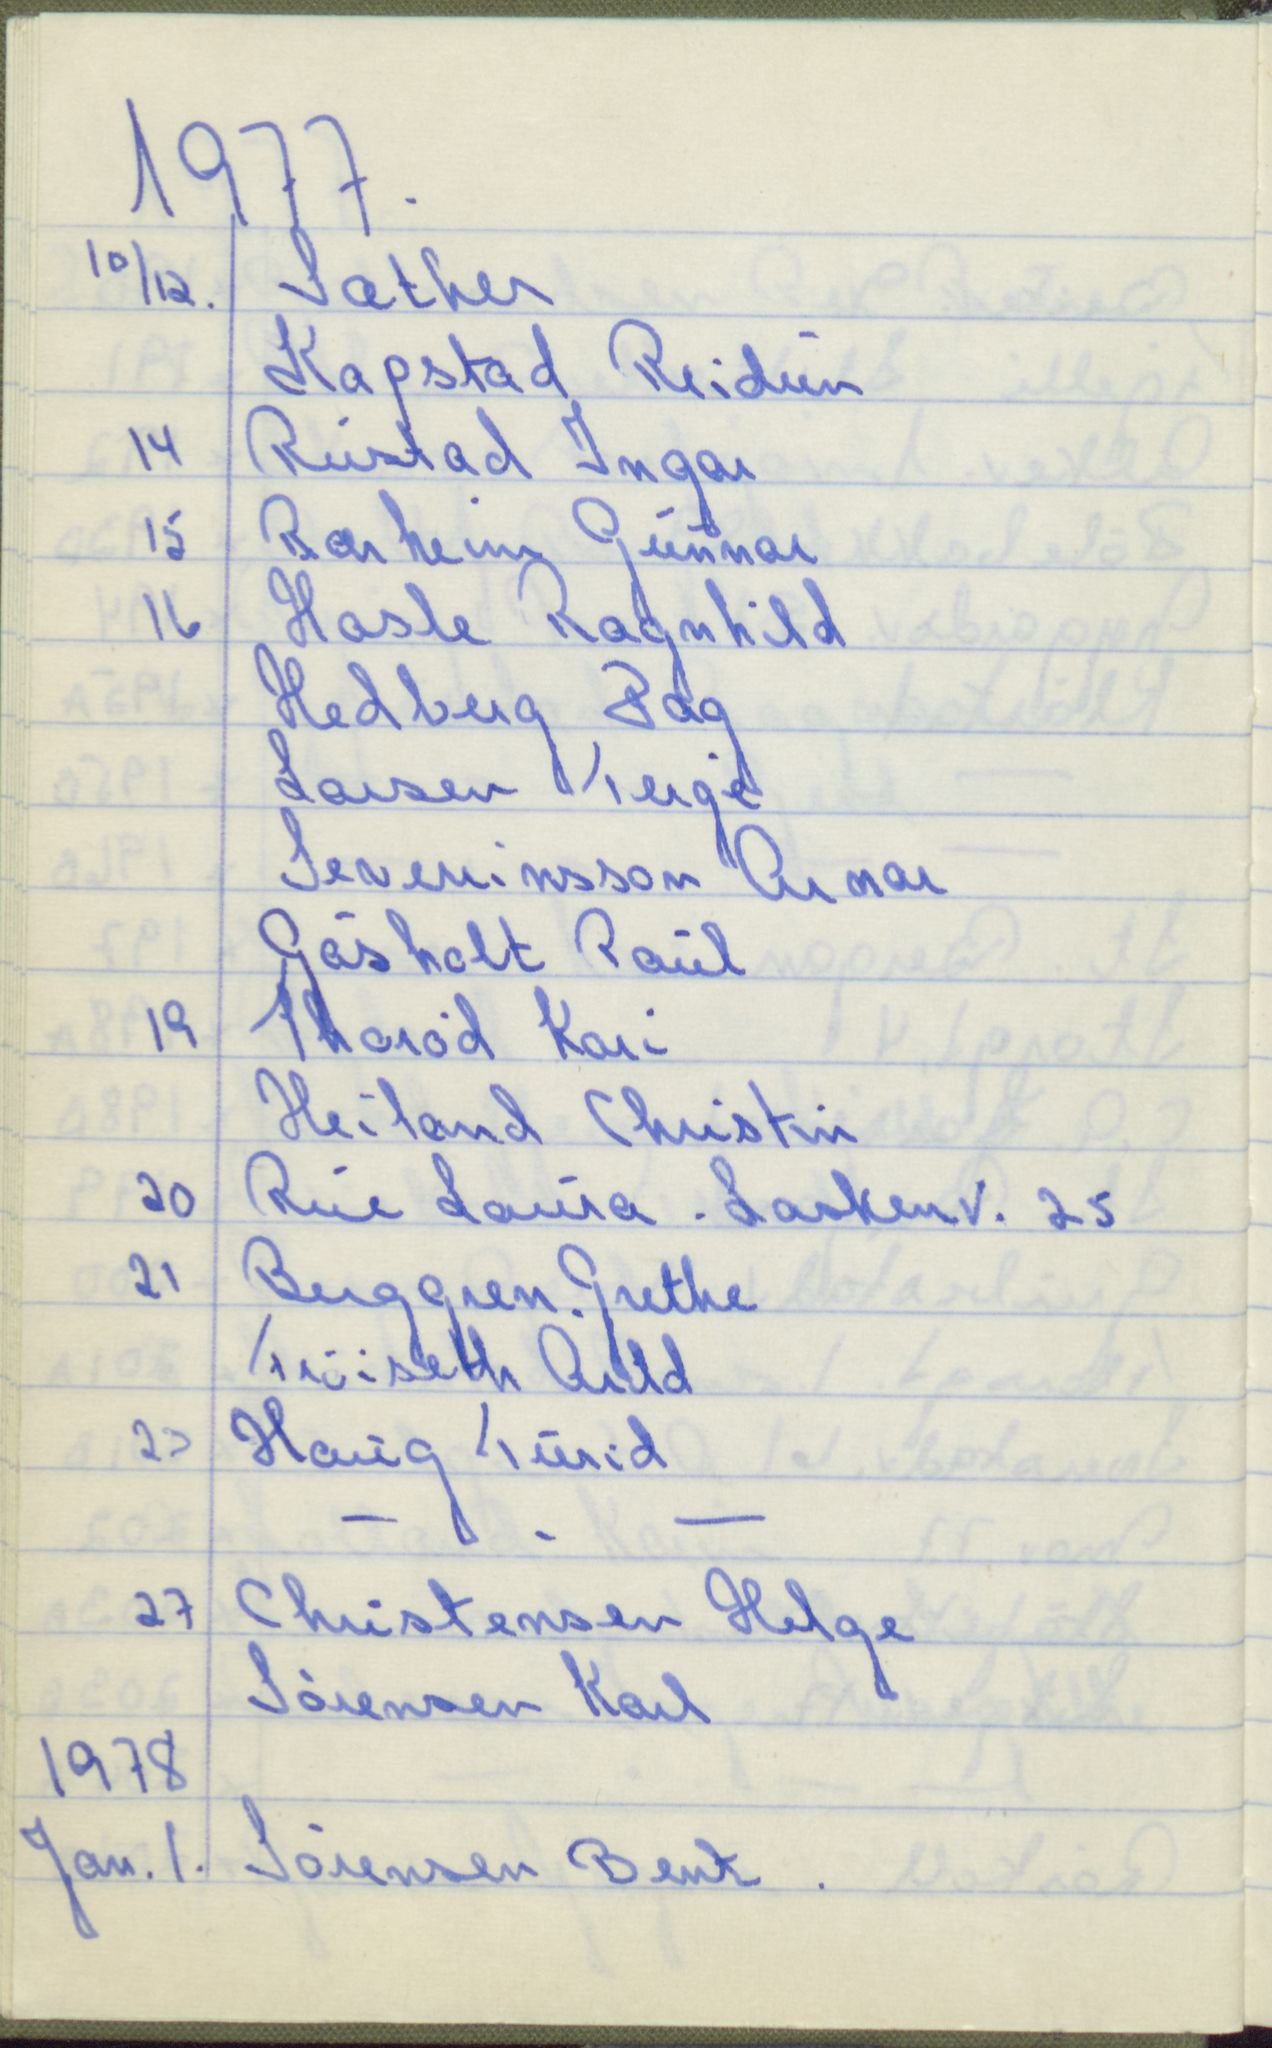 1977.
10/12. Sæther
Kapstad Reidun
14 Rustad Ingar
15 Rorheim Gunnar
16 Hasle Ragnhild
Hedberg Dag
Larsen Terje
Severinsson Arnar
Gåsholt Paul
19 Thoröd Kari
Heiland Christin
20 Rue Laura. Laskenv. 25
21 Berggren. Grethe
Tröiseth Arild
23 Haug Turid
— . —
27 Christensen Helge
Sörensen Karl
1978
Jan. 1. Sörensen Bent.